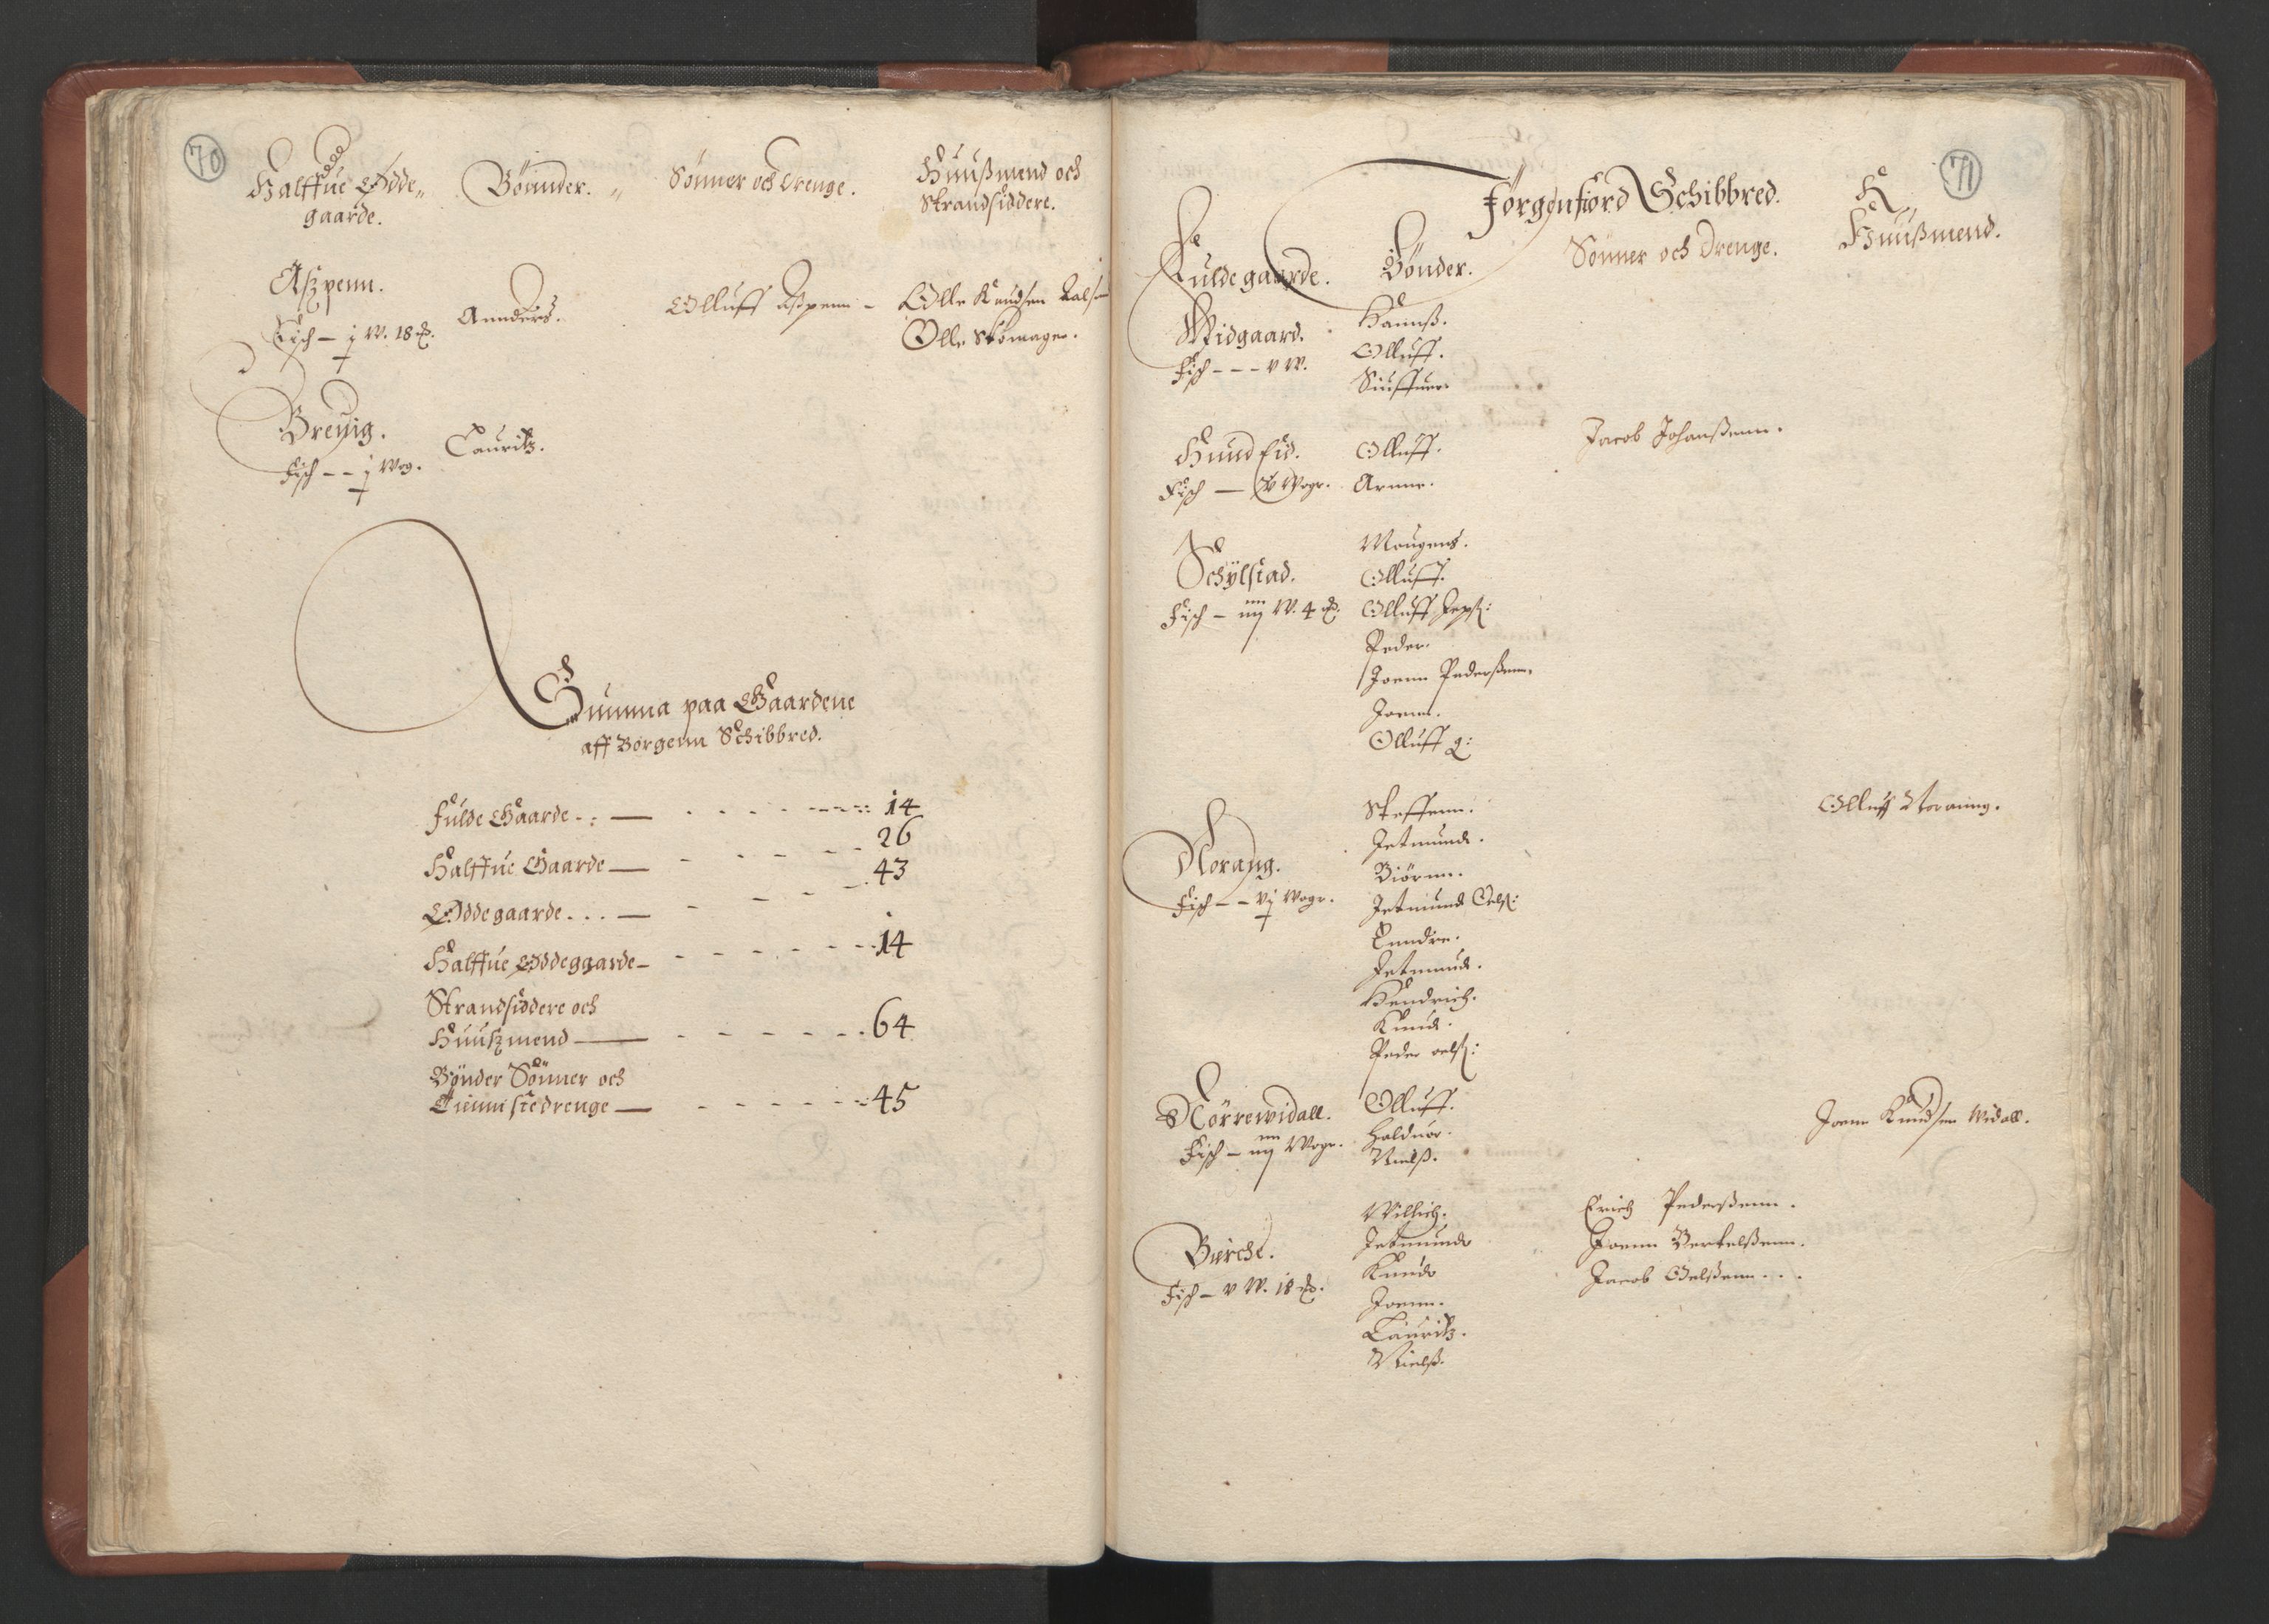 70
Halffue Ødde„
gaarde.
Bønder. „
Sønner och Drenge.
Huußmend och
Strandsiddere.
Aszpenn.
Fisch – j W. 18 ℔.
Annders.
Olluff Aspenn –
Olle Knudsen
Olle Skomager.
Breuig.
Fisch – – j Wog.
Lauritz.
Summa paa Gaardene
aff Borgenn Schibbred.
Fulde Gaarde – 14
Halffue Gaarde – 26
Øddegaarde – 43
Halffue Øddeggarde – 14
Strandsiddere och
Huuszmend – 64
Bønder Sønner och
Tiennistedrenge – 45
71
Jørgenfiord Schibbred.
Fulde gaarde.
Bønder.
Sønner och Drenge.
Huußmend.
Widgaard.
Fisch – – – v W.
Hannß.
Olluff.
Siuffuer.
Hund Eid.
Fisch – v Woger.
Olluff.
Arnne.
Jacob Johanßenn.
Schÿlstad.
Fisch – iiij W. 4 ℔.
Mougens.
Olluff.
Olluff Jepß:
Peder.
Joenn Pederßenn.
Joenn.
Olluff
Norang.
Fisch – – vj Woger.
Steffenn.
Jetmund.
Biørnn.
Jetmund Oelß:
Endre.
Jetmund.
Hendrich.
Knud.
Peder oelß:
Olluff Noraing.
Nörrewidall.
Fisch – iiij Woger.
Olluff.
Halduor.
Nielß.
Joenn Knudsen Widall.
Bierche.
Fisch – v W. 18 ℔.
Willich.
Jetmund
Knud
Joenn.
Lauritz.
Nielß.
Erich Pederßenn.
Joenn Bertelßenn.
Jacob Oelßenn . . .